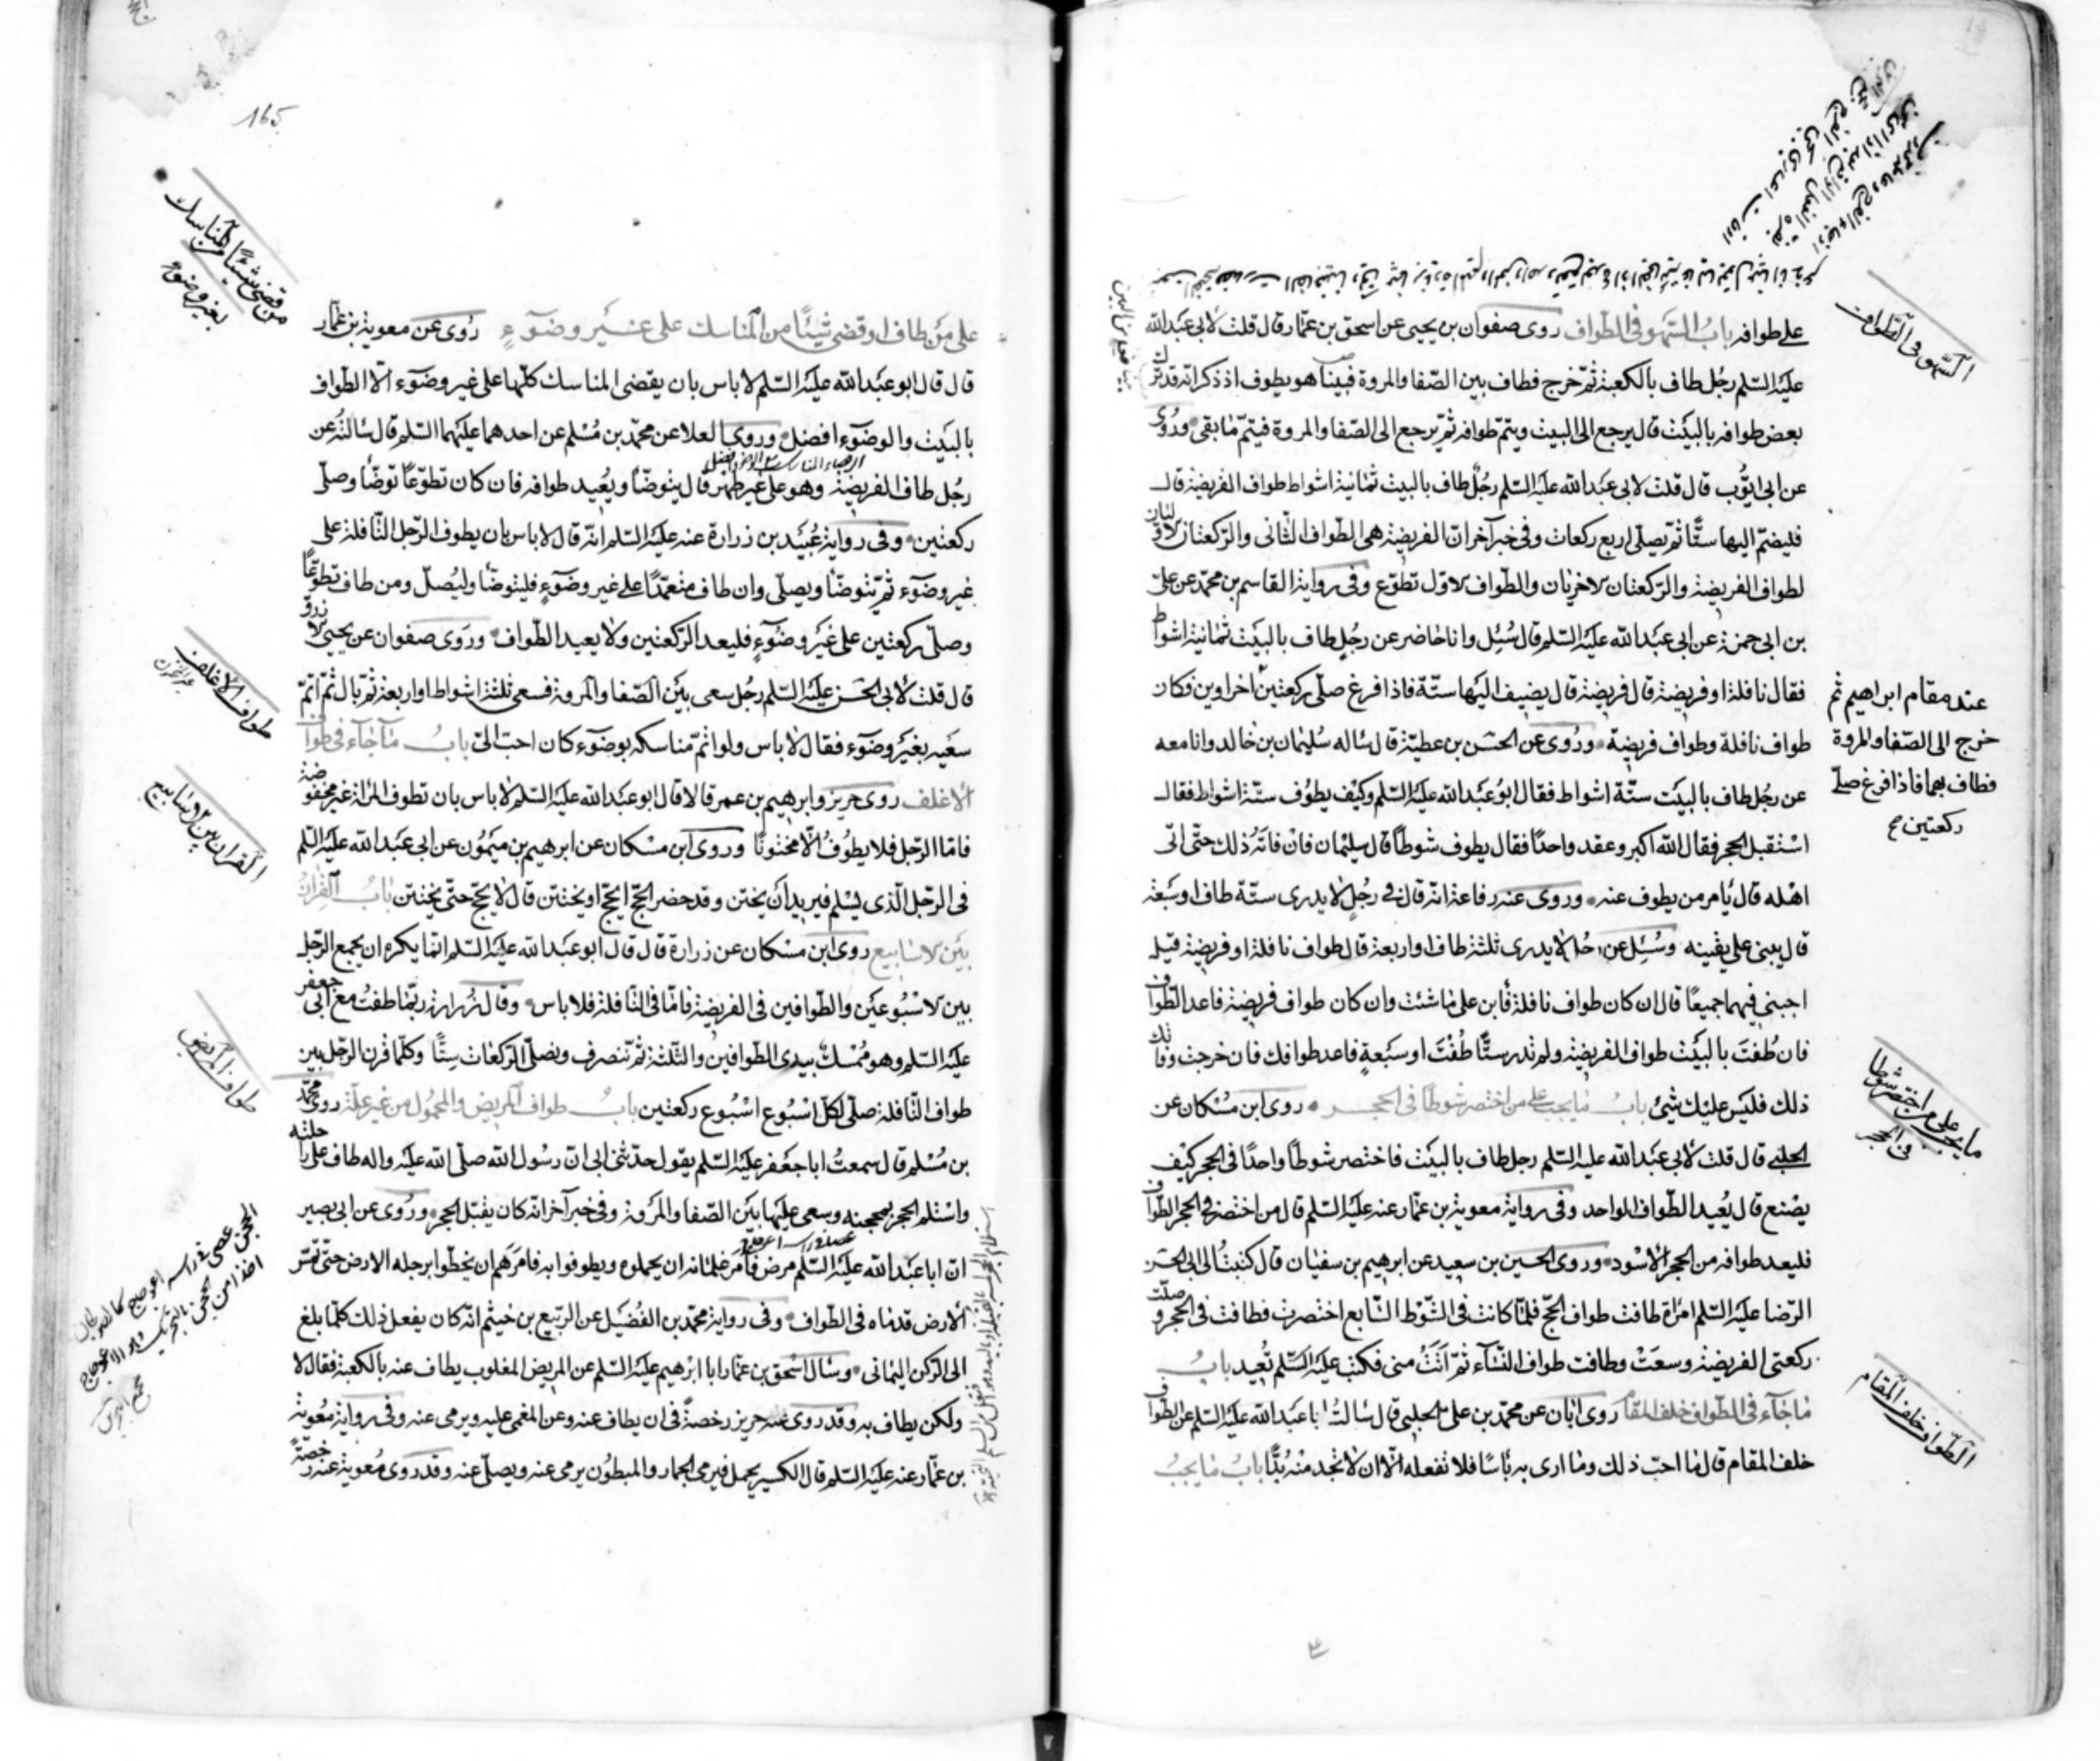 على طوافه باب السّهو فى الطّواف روى صفوان بن يحيى عن اسحق بن عمّار قال قلت لابى عبدالله
عليه السّلم رجُل طاف بالكعبة ثمّ خرج فطاف بين الصّفا والمروة فبينا هو يطوف اذ ذكر انّه قد ترك
بعض طوافه بالبيت قال يرجع الى البيت ويتمّ طوافه ثمّ يرجع الى الصّفا والمروة فيتمّ مابقى وروى
عن ابى ايّوب قال قلت لابى عبدالله عليه السّلم رجُلٌ طاف بالبيت ثمانية اشواط طواف الفريضة قال
فليضمّ اليها ستّا ثمّ يصلّى اربع ركعات وفى خبر آخر انّ الفريضة هى الطّواف الثّانى والرّكعتان الاوّليان
لطواف الفريضة والرّكعتان الاخريان والطّواف الاوّل تطوّع وفى رواية القاسم بن محمّد عن علىّ
بن ابى حمزة عن ابى عبدالله عليه السّلم قال سُئِل وانا حاضر عن رجُلٍ طاف بالبيت ثمانية اشواط
فقال نافلة او فريضة قال فريضة قال يضيف اليها ستّة فاذا فرغ صلّى ركعتين اخراوين فكان
عند مقام ابراهيم ثم
خرج الى الصّفا والمروة
فطاف بهما فاذا فرغ صلّى
ركعتين صح
طواف نافلة وطواف فريضة وروى عن الحسن بن عطيّة قال سأله سُليمان بن خالد وانا معه
عن رجُل طاف بالبيت ستّة اشواط فقال ابو عبدالله عليه السّلم وكيف يطوف ستّة اشواط فقال
استقبل الحجر فقال الله اكبر وعقد واحدًا فقال يطوف شوطًا قال سليمان فان فاته ذلك حتّى اتى
اهله قال يأمر من يطوف عنه وروى عنه رفاعة انّه قال فى رجُلٍ لا يدرى ستّة طاف او سبعة
قال يبنى على يقينه وسُئِل عن رجُل لا يدرى ثلثة طاف او اربعة قال طواف نافلة او فريضة قيل له
اجبنى فيهما جميعًا قال ان كان طواف نافلة فابن على ماشئت وان كان طواف فريضة فاعد الطّواف
فان طُفتَ بالبيت طواف الفريضة ولم تدر ستًّا طُفْتَ او سبعةٍ فاعد طوافك فان خرجت وفاتك
ذلك فليس عليك شئ باب مايجب على من اختصر شوطًا فى الحجر روى ابن مُسْكان عن
الحلبى قال قلت لأبى عبدالله عليه السّلم رجل طاف بالبيت فاختصر شوطًا واحدًا فى الحجر كيف
يصنع قال يُعيد الطّواف الواحد وفى رواية معوية بن عمّار عنه عليه السّلم قال من اختصر فى الحجر الطّواف
فليعد طوافه من الحجر الأسود وروى الحسين بن سعيد عن ابرهيم بن سفيان قال كتبتُ الى ابى الحسن
الرّضا عليه السّلم امرأة طافت طواف الحجّ فلمّا كانت فى الشّوط السّابع اختصرت فطافت فى الحجر وصلّت
ركعتى الفريضة وسعت وطافت طواف النّساء ثمّ اتَتْ منى فكتب عليه السّلم تُعيد باب
ماجآء فى الطّواف خلف المقام روى ابان عن محمّد بن على الحلبى قال سالتُ اباعبدالله عليه السّلم عن الطّواف
خلف المقام قال ما احبّ ذلك وما ارى به بأسًا فلا تفعله الّا ان لا تجد منه بُدًّا باب مايجبُ
السّهو فى الطّواف
ما يجب على من اختصر شوطا
فى الحجر
الطّواف خلف المقام
165
على من طاف او قضى شيئًا من المناسك على غير وضوءٍ روى عن معوية بن عمّار
قال قال ابو عبدالله عليه السّلم لا باس بان يقضى المناسك كلّها على غير وضوء الّا الطّواف
بالبيت والوضوء افضل وروى العلا عن محمّد بن مُسْلم عن احدهما عليهما السّلم قال سالتُه عن
رجُل طاف الفريضة وهو على غير طهر قال يتوضّأ ويُعيد طوافه فان كان تطوّعًا توضّأ وصلّى
ركعتين وفى رواية عُبَيْد بن زرارة عنه عليه السّلم انّه قال لا باس بان يطوف الرّجل النّافلة على
غير وضوء ثمّ يتوضّأ ويصلّى وان طاف متعمّدًا على غير وضوءٍ فليتوضّأ وليُصلّ ومن طاف تطوّعًا
وصلّى ركعتين على غير وضوءٍ فليعد الرّكعتين ولا يعيد الطّواف وروى صفوان عن يحيى الازرق
قال قلت لأبى الحسن عليه السّلم رجُل سعى بين الصّفا والمروة فسعى ثلثة اشواط او اربعة ثمّ بال ثمّ اتمّ
سعيه بغير وضوء فقال لا باس ولو اتمّ مناسكه بوضوء كان احبّ الىّ باب ماجآء فى طواف
الأغلف روى حريز وابرهيم بن عمر قالا قال ابوعبدالله عليه السّلم لا باس بان تطوف المرأة غير مخفوضة
فامّا الرّجل فلا يطُوفُ الّا مختونًا وروى ابن مسكان عن ابرهيم بن ميمُون عن ابى عبدالله عليه السّلم
فى الرّجل الّذى يُسْلم فيريد أن يختتن وقد حضر الحجّ ايحجّ او يختتن قال لا يحجّ حتّى يختتن باب القران
بين الاسابيع روى ابن مسكان عن زرارة قال قال ابو عبدالله عليه السّلم انّما يكره ان يجمع الرّجل
بين الاسْبُوعين والطّوافين فى الفريضة فامّا فى النّافلة فلا باس وقال زُرارة ربّما طفتُ مع ابى جعفر
عليه السّلم وهو مُمْسكٌ بيدى الطّوافين والثّلثة ثمّ تنصرف ونصلّى الرّكعات ستًّا وكلّما قرن الرّجل بين
طواف النّافلة صلّى لكلّ اسْبُوع اسْبُوع ركعتين باب طواف المريض والمحمول من غير علّة روى محمّد
بن مُسْلم قال سمعتُ اباجعفر عليه السّلم يقول حدّثنى ابى انّ رسُول الله صلّى الله عليه واله طاف على راحلته
واستلم الحجر بمحجنه وسعى عليها بين الصّفا والمروة وفى خبر آخر انّه كان يقبّل الحجر وروى عن ابى بصير
انّ اباعبدالله عليه السّلم مرض فأمر غلمانه ان يحملوه ويطوفوا به فامَرَهم ان يخطّوا برجله الارض حتّى تمسّ
الأرض قدماه فى الطّواف وفى رواية محمّد بن الفُضَيل عن الرّبيع بن خيثم انّه كان يفعل ذلك كلّما بلغ
الى الرّكن اليمانى وسأل اسْحق بن عمّار ابا ابرْهيم عليه السّلم عن المريض المغلوب يطاف عنه بالكعبة فقال لا
ولكن يطاف به وقد روى عنه حريز رخصةً فى ان يطاف عنه وعن المغمى عليه ويرمى عنه وفى رواية مُعوية
بن عمّار عنه عليه السّلم قال الكسير يحمل فيرمى الجمار والمبطُون يرمى عنه ويصلّى عنه وقد روى مُعوية عنه رخصةً
من قضى شيئًا من المناسك
بغير وضوء
طواف الاغلف
القران بين الاسابيع
طواف المريض